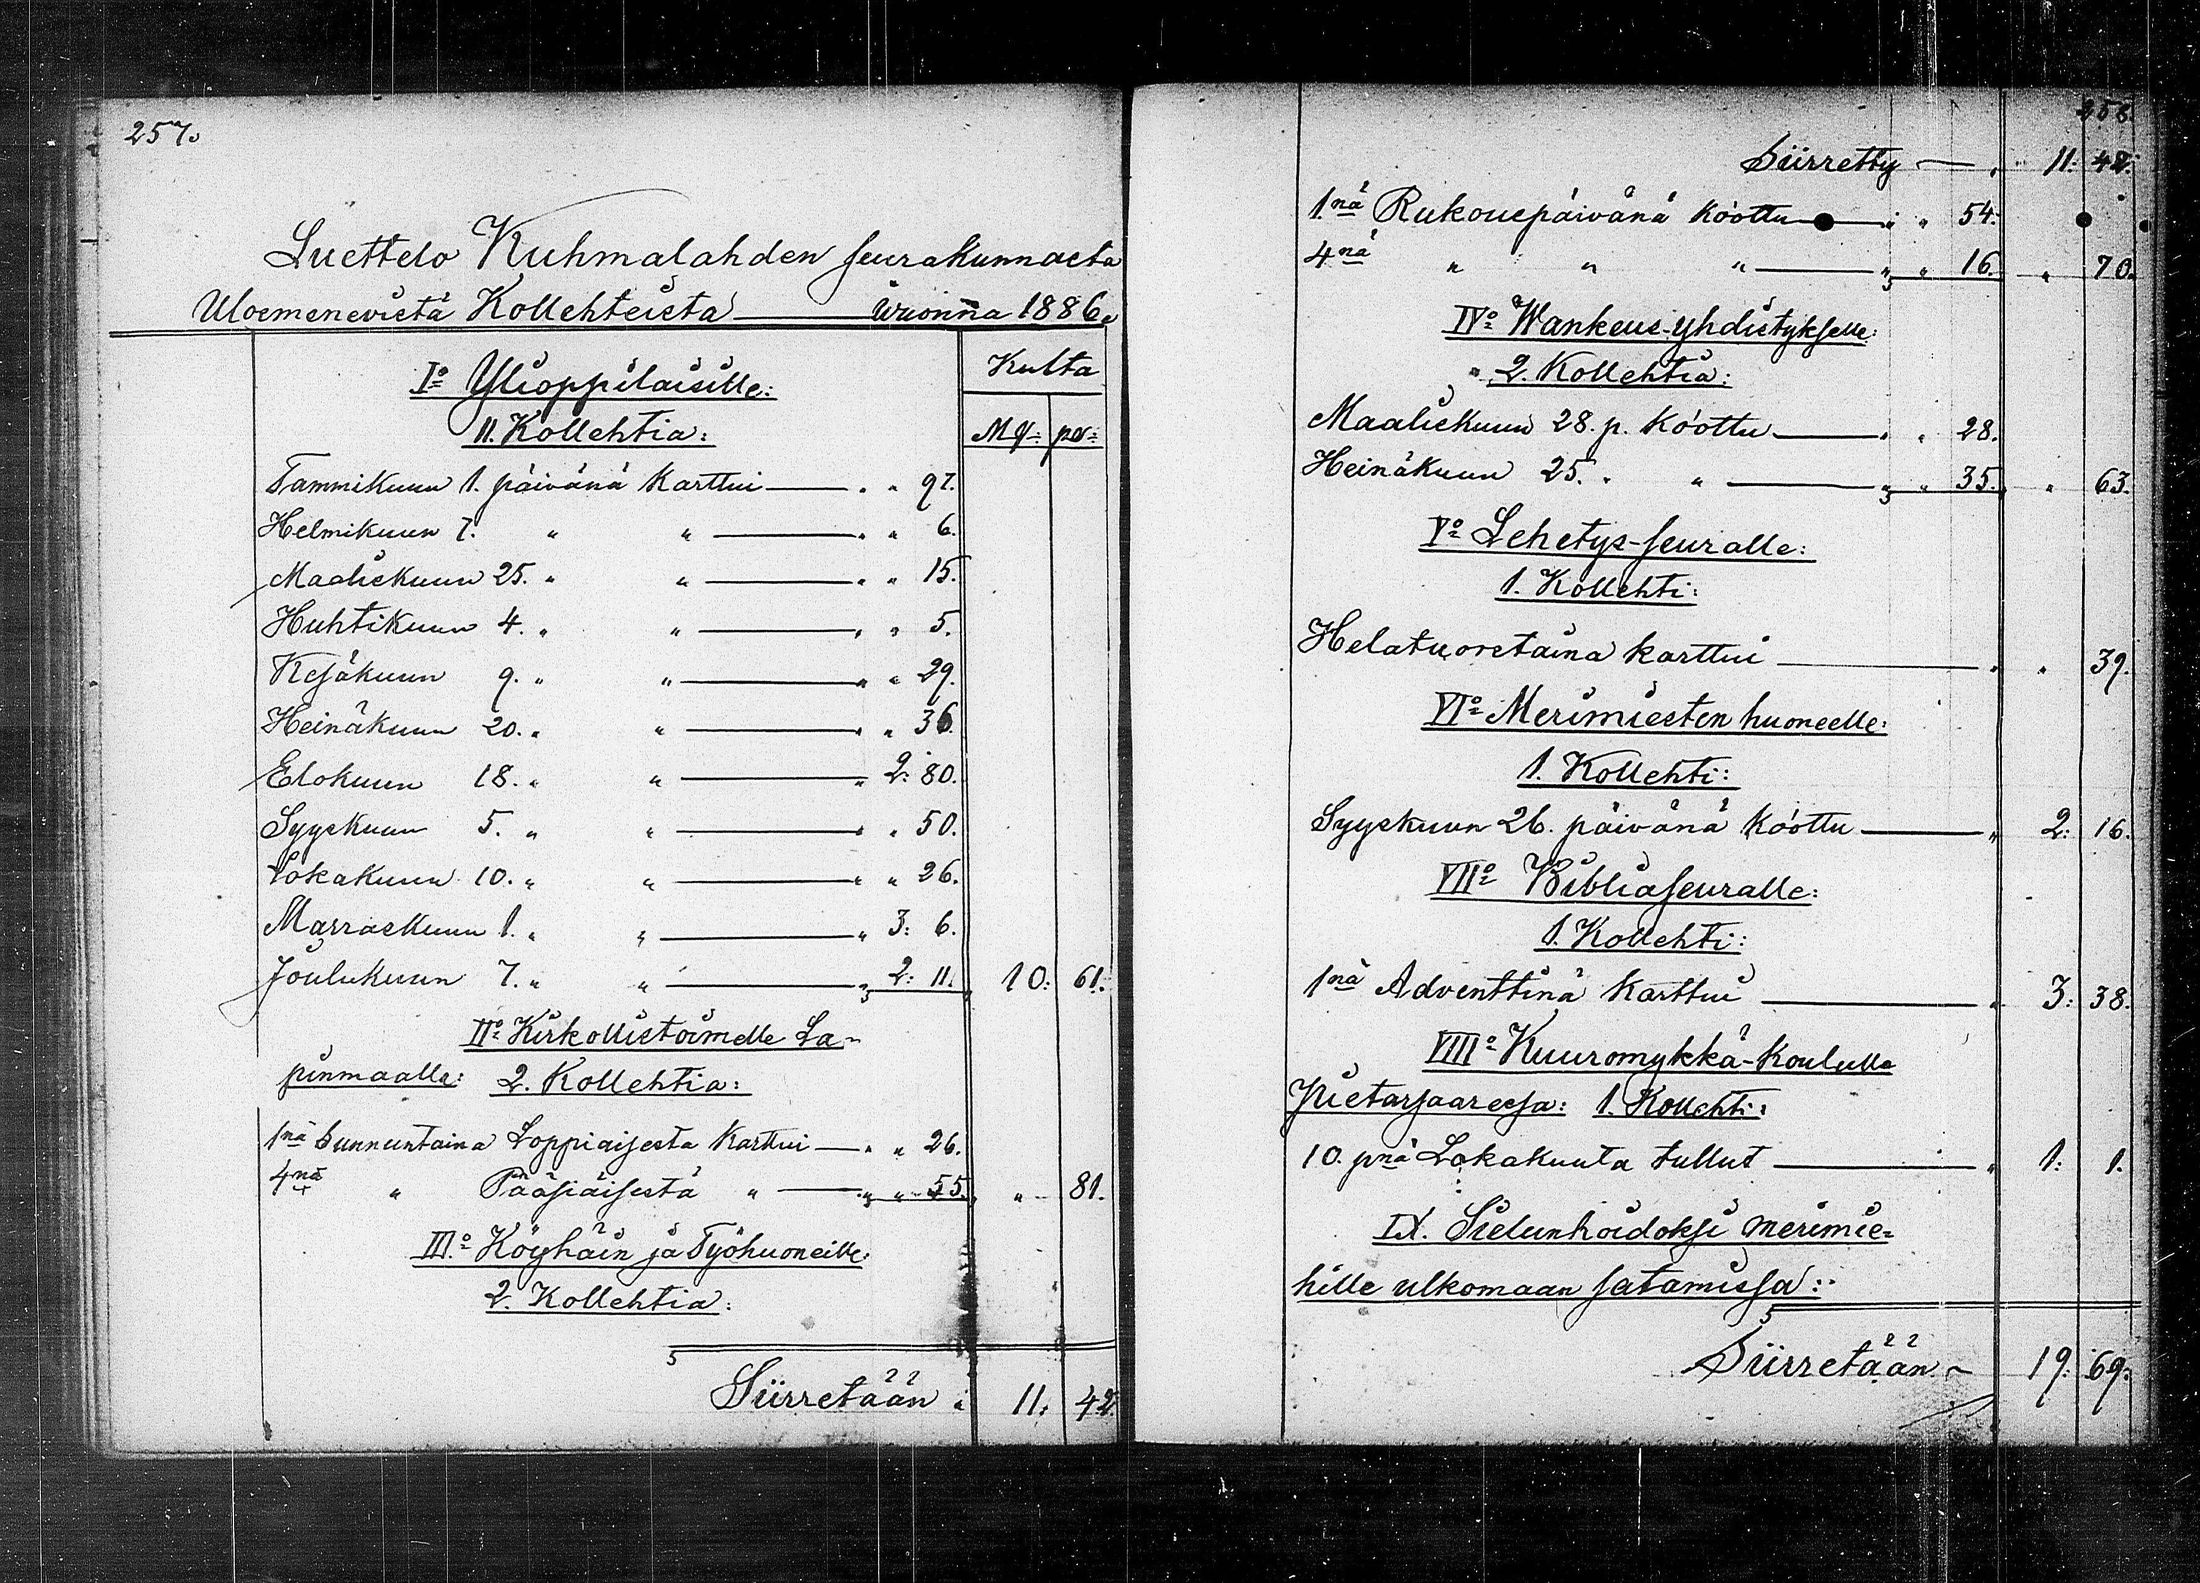 257.
Luettelo Kuhmalahden seurakunnasta
Ulosmenevistä Kollehteista — vuonna 1886.
Kulta
Mk: pä:
Io Ylioppilaisille:
11. Kollehtia:
Tammikuun 1. päivänä karttui — " " 97.
Helmikuun 7. " " — " " 6.
Maaliskuun 25. " " — " " 15.
Huhtikuun 4. " " — " " 5.
Kesäkuun 9. " " — " " 29.
Heinäkuun 20. " " — " " 36.
Elokuun 18. " " — " 2: 80.
Syyskuun 5. " " — " " 50.
Lokakuun 10. " " — " " 26.
Marraskuun 1. " " — " 3: 6.
Joulukuun 7. " " — " 2: 11. 10: 61.
IIo Kirkollistoimelle La-
pinmaalla: 2. Kollehtia:
1nä Sunnuntaina Loppiaisesta karttui — " " 26.
4nä " Pääsiäisestä " — " " 55. " " 81.
III.o Köyhäin ja Työhuoneille:
2. Kollehtia:
Siirretään " 11. 42.
258.
Siirretty — " " 11: 42.
1nä Rukouspäivänä ko'ottu — " " 54.
4nä " " " — " " 16. " " 70.
IVo Wankeus-yhdistykselle:
2. Kollehtia:
Maaliskuun 28. p. ko'ottu — " " 28.
Heinäkuun 25. " " — " " 35. " " 63.
Vo Lehetys-seuralle:
1. Kollehti:
Helatuorstaina karttui — " " 39.
VIo Merimiesten huoneelle:
1. Kollehti:
Syyskuun 26. päivänä ko'ottu — " 2: 16.
VIIo Bibliaseuralle:
1. Kollehti:
1nä Adventtina karttui — " 3: 38.
VIIIo Kuuromykkä-Koululle
Pietarsaaressa: 1. Kollehti:
10. pnä Lokakuuta tullut — " 1: 1.
IX. Sielunhoidoksi merimie-
hille ulkomaan satamissa:
Siirretään — 19: 69.